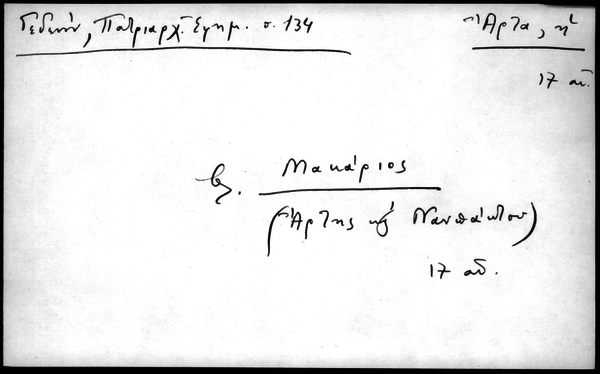 Γεδεών, Πατριαρχ. Εφημ. σ. 134
Ἄρτα, ἡ
17 αἰ.
βλ. Μακάριος
(Ἄρτης κ' Ναυπάκτου)
17 αἰ.